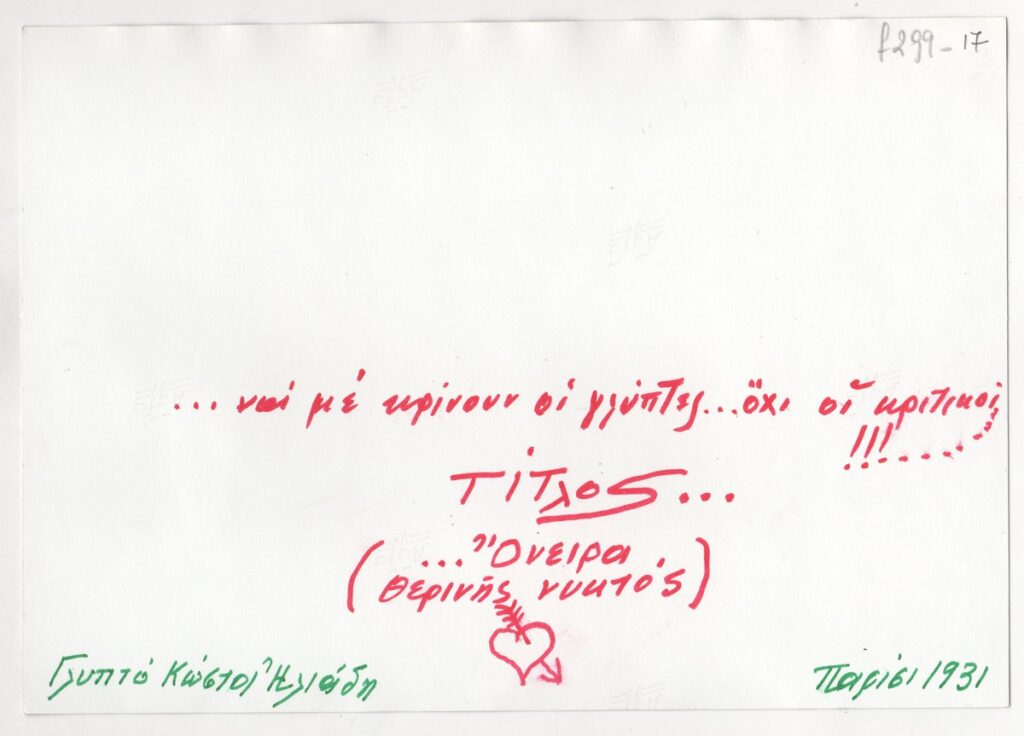 f299-17
...νά μέ κρίνουν οἱ γλύπτες...ὄχι οἱ κριτικοί
!!!......
Τίτλος...
(...Ὄνειρα
θερινῆς νυκτός)
Γλυπτό Κώστα Ἠλιάδη
Παρίσι 1931